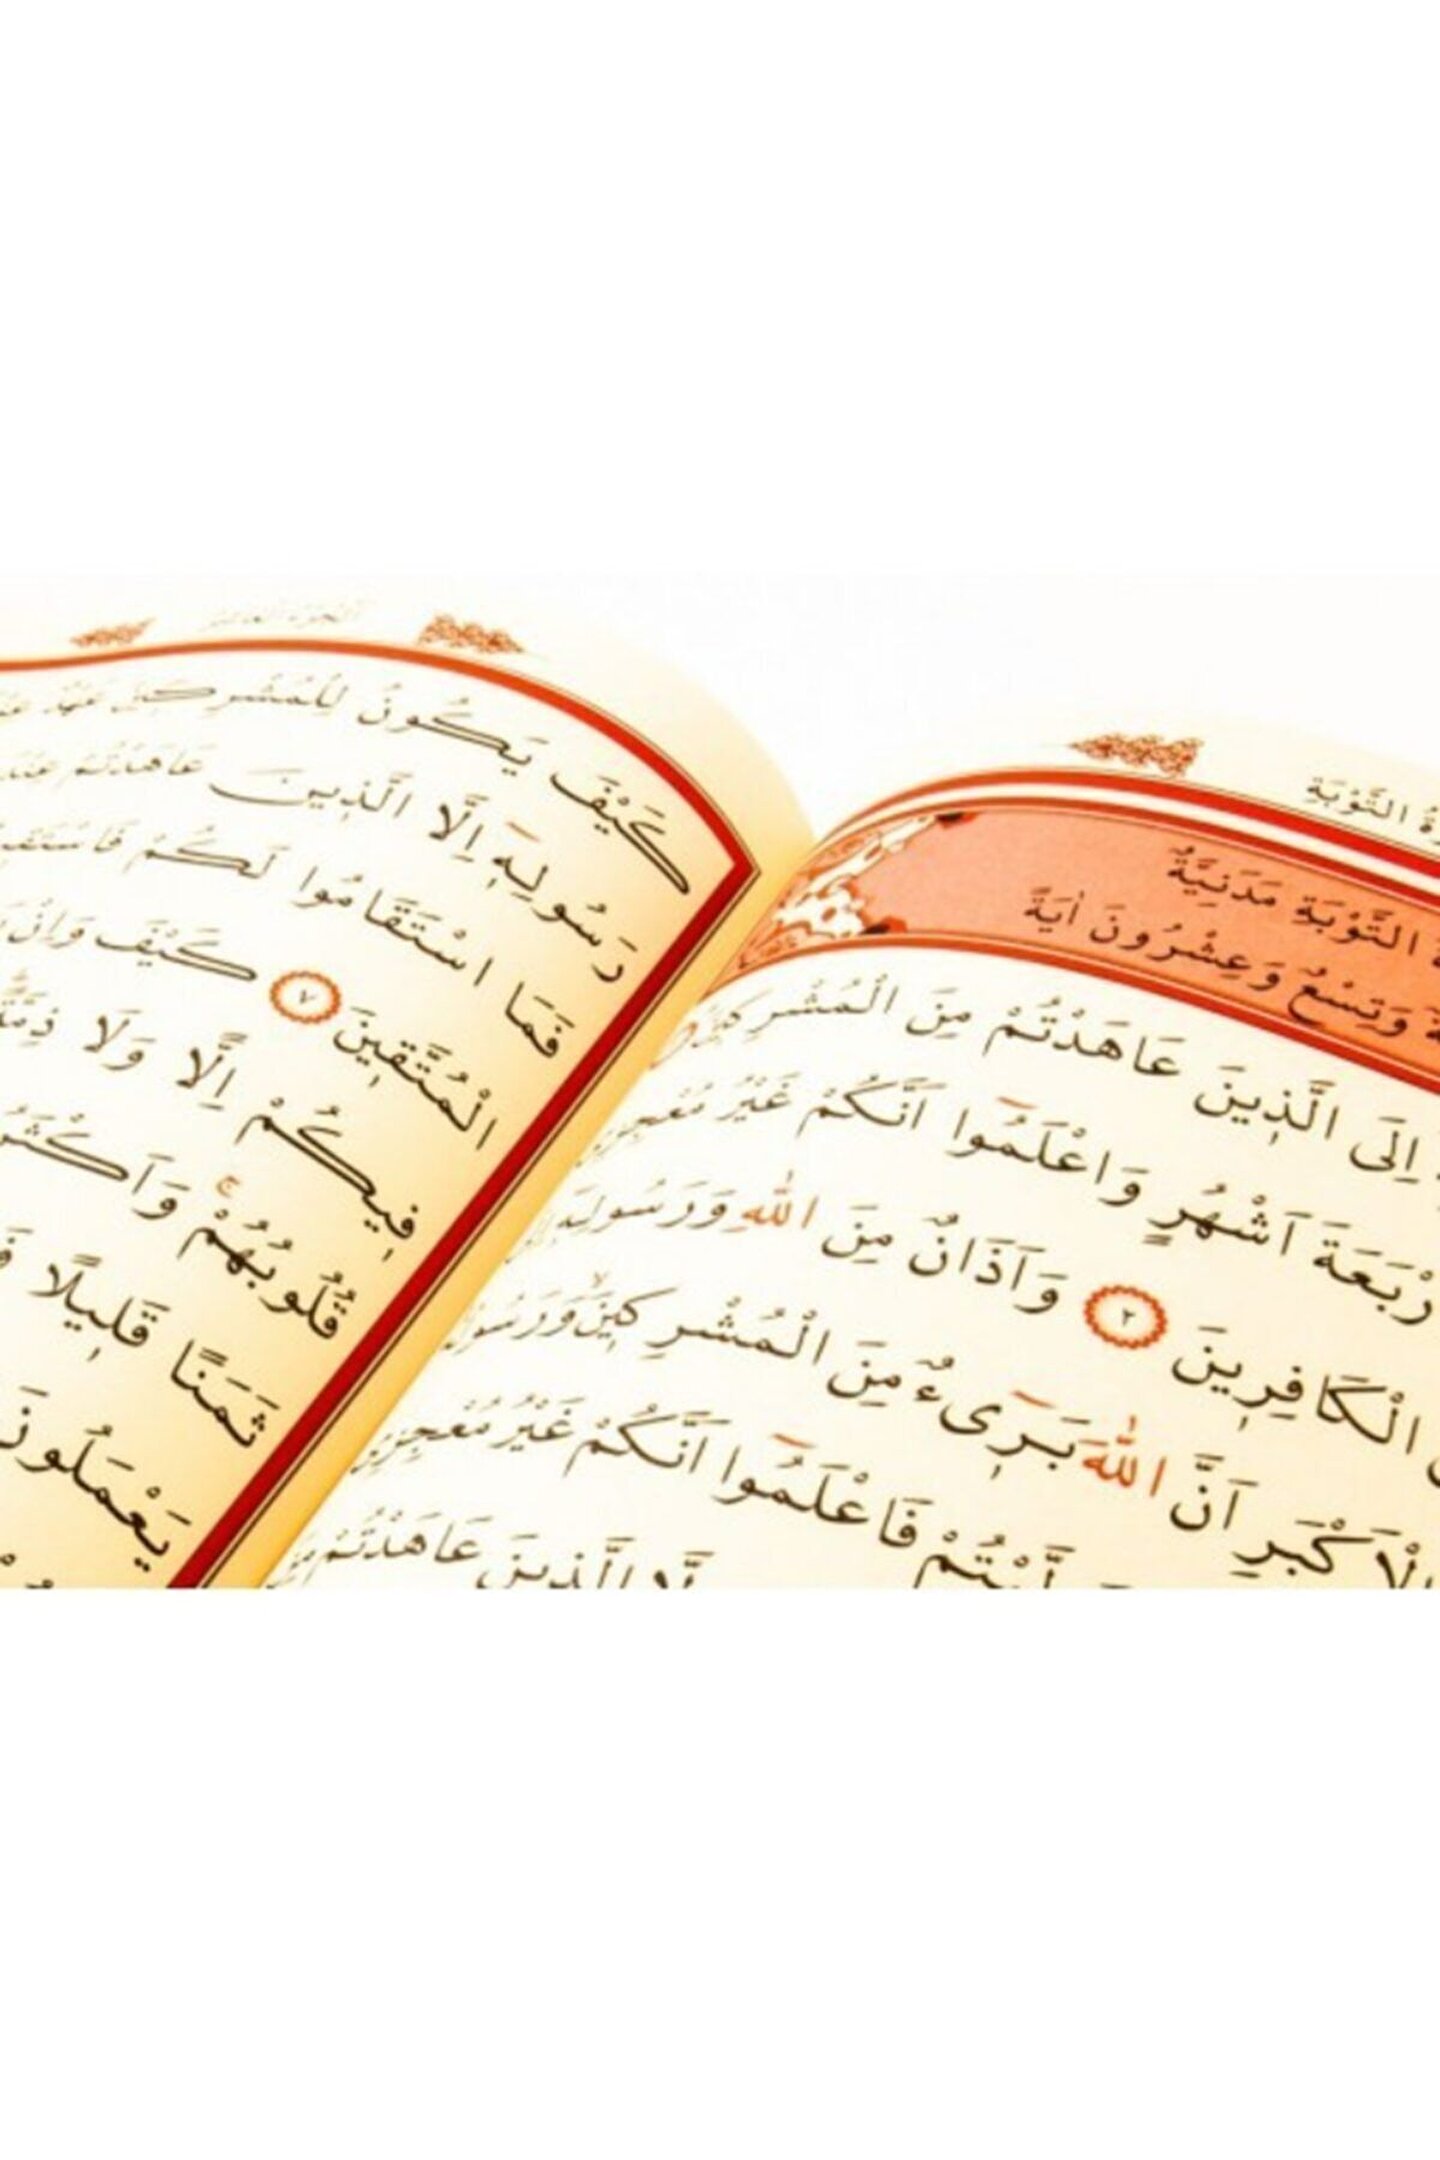 التَّوْبَةِ
التَّوْبَةِ مَدَنِيَّةٌ
وَتِسْعٌ وَعِشْرُونَ اٰيَةً
اِلَى الَّذِينَ عَاهَدْتُمْ مِنَ الْمُشْرِكِينَ
اَشْهُرٍ وَاعْلَمُوا اَنَّكُمْ غَيْرُ مُعْجِزِي
الْكَافِرِينَ ٢ وَاَذَانٌ مِنَ اللّٰهِ وَرَسُولِهِ
اَنَّ اللّٰهَ بَرِىءٌ مِنَ الْمُشْرِكِينَ وَرَسُولُهُ
فَاعْلَمُوا اَنَّكُمْ غَيْرُ مُعْجِزِي
الَّذِينَ عَاهَدْتُمْ
كَيْفَ يَكُونُ لِلْمُشْرِكِينَ عَهْدٌ
رَسُولِهِ اِلَّا الَّذِينَ عَاهَدْتُمْ عِنْدَ
فَمَا اسْتَقَامُوا لَكُمْ
الْمُتَّقِينَ ٧ كَيْفَ وَاِنْ
فِيكُمْ اِلًّا وَلَا ذِمَّةً
قُلُوبُهُمْ وَاَكْثَرُ
ثَمَنًا قَلِيلًا
يَعْمَلُونَ